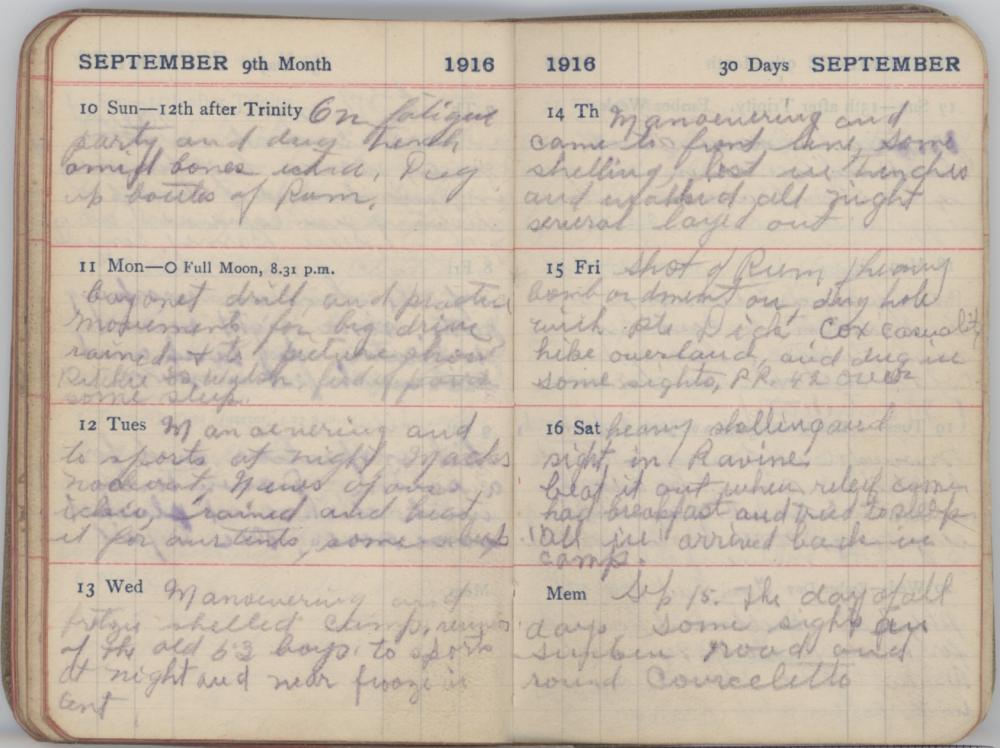 SEPTEMBER 9th Month 1916
10 Sun—12th after Trinity On fatigue
party and dug trench
amid bones, Dug
up bottles of Rum,
11 Mon—O Full Moon, 8.31 p.m.
bayonet drill, and practice
movements for big drive
rained & to picture show
Ritchie & Walsh
some sleep.
12 Tues Manoevering and
to sports at night Macks
News of
rained and beat
it for our tents, some sleep
13 Wed Manoevering and
fritzie shelled camp, reunion
of the old 53 boys. to sports
at night and near frooze in
tent
1916 30 Days SEPTEMBER
14 Th Manoevering and
came to front line, some
shelling, lost in trenches
and walked all night
several layed out
15 Fri Shot of Rum, heavy
bombardment on, dug hole
with pte Dick Cox casualty
hike overland, and dug in
some sights, P.P. 42 over
16 Sat heavy shelling and
sight, in Ravine,
beat it out when relief came
had breakfast and tried to sleep
all in arrived back in
camp.
Mem Sep 15. The day of all
days, some sights in
sunken road and
round Courcelette